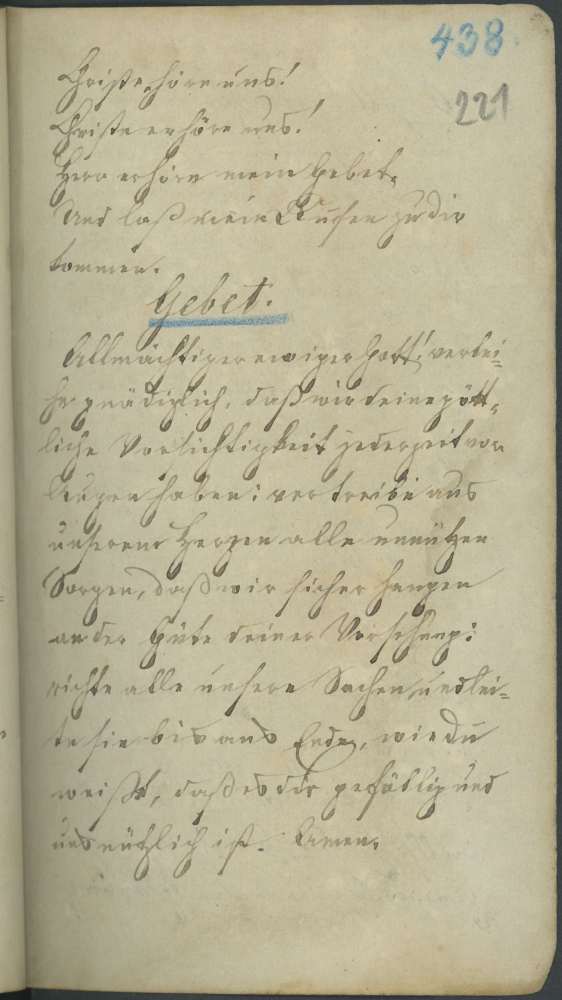 438.
221
Christe höre uns!
Christe erhöre uns!
Herr erhöre mein Gebet.
Und laß mein Rufen zu dir
kommen.
Gebet.
Allmächtiger ewiger Gott! verlei=
he gnädiglich, daß wir deine gött=
liche Vorsichtigkeit jederzeit vor
Augen haben: vertreibe aus
unserem Herzen alle unnützen
Sorgen, daß wir sicher hangen
an der Güte deiner Vorsehung:
richte alle unsere Sachen und lei=
te sie bis ans Ende, wie du
weißt, daß es dir gefällig und
uns nützlich ist. Amen.